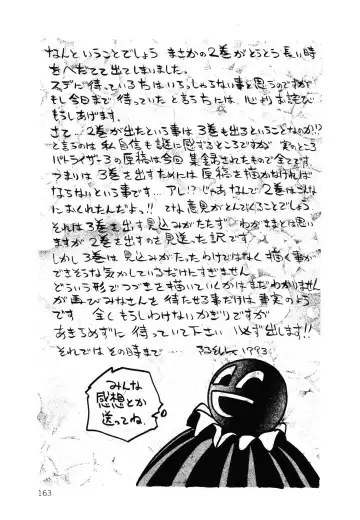 なんということでしょう まさかの2巻がとうとう長い時
をへだてて出てしまいました。
スデに待っている方はいらっしゃらない事と思うのですが
もし今日まで待っていたと言う方には 心よりお詫び
もうしあげます。
さて… 2巻が出たという事は3巻も出るということなのか!?
と言うのは私自信も謎に感ずるところですが 実のところ
バトライザー3の原稿は今回集録されたもので全てです。
つまりは3巻を出すためには原稿を描かなければ
ならないという事です… アレ!?じゃあなんで2巻はこんな
におくれたんだよっ!! てな意見がとんでくることでしょう
それは3巻を出す見込みがたたず わがままとは思い
ますが2巻を出すのを見送った訳です
しかし3巻は見込みがたったわけではなく描く事が
できそうな気がしているだけにすぎません
どういう形でつづきを描いていくかはまだわかりません
が再びみなさんを待たせる事だけは事実のよう
です 全くもうしわけないかぎりですが
あきらめずに待っていて下さい 必ず出します!!
それではその時まで… 1993
みんな
感想とか
送ってね。
163